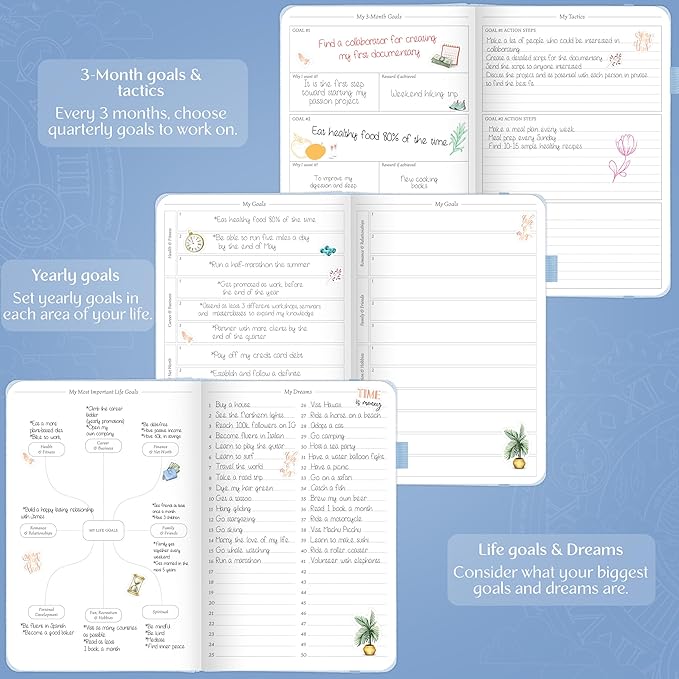 3-Month goals &
tactics
Every 3 months, choose
quarterly goals to work on.
My 3-Month Goals
GOAL #1
Find a collaborator for creating
my first documentary
Why I want it?
It is the first step
toward starting my
passion project
Reward if achieved:
Weekend hiking trip
GOAL #2
Eat healthy food 80% of the time
Why I want it?
To improve my
digestion and sleep
Reward if achieved:
New cooking
books
My Tactics
GOAL #1 ACTION STEPS
Make a list of people who could be interested in
collaborating
Create a detailed script for the documentary
Send the script to anyone interested
Discuss the project and its potential with each person in private
to find the best fit
GOAL #2 ACTION STEPS
Make a meal plan every week
Meal prep every Sunday
Find 10-15 simple healthy recipes
Yearly goals
Set yearly goals in
each area of your life.
My Goals
Health & Fitness
1
*Eat healthy food 80% of the time
2
*Be able to run five miles a day
by the end of May
3
*Run a half-marathon this summer
Career & Business
1
*Get promoted at work before
the end of the year
2
*Attend at least 3 different workshops, seminars
and masterclasses to expand my knowledge
3
*Partner with more clients by the
end of the quarter
1
*Pay off my credit card debt
2
*Establish and follow a definite
My Goals
Romance & Relationships
1
2
3
Family & Friends
1
2
3
1
2
My Most Important Life Goals
*Eat a more
plant-based diet
*Climb the career
ladder
(yearly promotions)
*Open my
own company
*Be debt-free
*Have passive income
*Have 60k in savings
Health
& Fitness
Career
& Business
Finance
& Net Worth
*Build a happy lasting relationship
with James
Romance
& Relationships
MY LIFE GOALS
*Get friends at least
once a month
*Have 3 children
Family
& Friends
*Family gets
together every
weekend
*Get married in the
next 5 years
Personal
Development
Fun, Recreation
& Hobbies
Spiritual
*Be fluent in Spanish
*Become a good baker
*Visit as many countries
as possible
*Read at least
1 book a month
*Be mindful
*Be kind
*Meditate
*Find inner peace
My Dreams
TIME
is money
1 Buy a house
2 See the Northern lights
3 Reach 100k followers on IG
4 Become fluent in Italian
5 Learn to play the guitar
6 Learn to surf
7 Travel the world
8 Take a road trip
9 Dye my hair green
10 Get a tattoo
11 Hang gliding
12 Go stargazing
13 Go skiing
14 Marry the love of my life
15 Go whale watching
16 Run a marathon
17
18
19
20
21
22
23
24
25
26 Visit Hawaii
27 Ride a horse on a beach
28 Adopt a cat
29 Go camping
30 Host a tea party
31 Have a water balloon fight
32 Have a picnic
33 Go on a safari
34 Catch a fish
35 Brew my own beer
36 Read 1 book a month
37 Ride a motorcycle
38 Visit Machu Picchu
39 Learn to make sushi
40 Ride a roller coaster
41 Volunteer with elephants
42
43
44
45
46
47
48
49
50
Life goals & Dreams
Consider what your biggest
goals and dreams are.